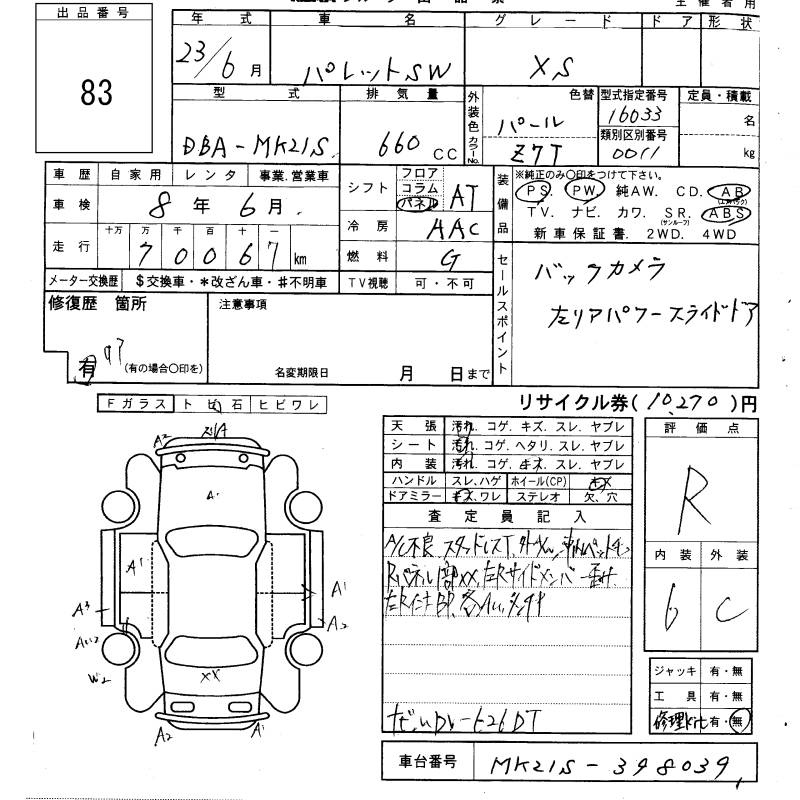 出品番号
83
年式 車名 グレード ドア 形状
23/6月 パレットSW XS
型式 排気量 外装色 色替 型式指定番号 定員・積載
DBA-MK21S 660 CC カラーNo. パール 16033 名
Z7T 類別区別番号 0011 kg
車歴 自家用 レンタ 事業.営業車
車検 8年6月
走行 十万 万 千 百 十 一
70067 km
メーター交換歴 $交換車・*改ざん車・#不明車
シフト フロア コラム パネル AT
冷房 AAC
燃料 G
TV視聴 可・不可
装備品 ※純正のみ○印をつけて下さい。
PS. PW. 純AW. CD. AB (エアバック)
TV. ナビ. カワ. SR. (サンルーフ) ABS
新車保証書. 2WD. 4WD
セールスポイント
バックカメラ
左リアパワースライドドア
修復歴 箇所
有 (有の場合○印を)
注意事項
名変期限日 月 日まで
リサイクル券(10,270)円
Fガラス トビ石 ヒビワレ
天張 汚れ. コゲ. キズ. スレ. ヤブレ
シート 汚れ. コゲ. ヘタリ. スレ. ヤブレ
内装 汚れ. コゲ. キズ. スレ. ヤブレ
ハンドル スレ. ハゲ ホイール(CP) キズ
ドアミラー キズ. ワレ ステレオ 欠. 穴
査定員記入
A/C不良 スタッドレスT
評価点
R
内装 外装
6 C
A2
A1
A1
A1
A3
A2
W2
XX
A2
A1
ジャッキ 有・無
工具 有・無
修理kit 有・無
車台番号 MK21S-398039